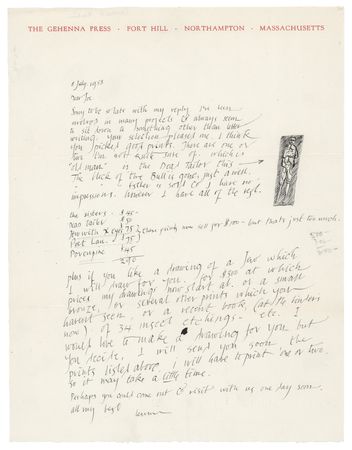 THE GEHENNA PRESS · FORT HILL · NORTHAMPTON · MASSACHUSETTS
8 July. 1958
Dear Joe
Sorry to be so late with my reply. I'm
involved in many projects & always seem
to sit down to something other than letter
writing. Your selection pleased me. I think
you picked good prints. There are one or
two I'm not quite sure of. which is
"old man" is the Dead Tailor this →
The block of the Bull is gone, just as well.
is sold & I have no
impressions. However I have all of the rest.
the sisters - $40-
Dead tailor $
75
Poet Laur. $75
Porcupine $
290
these prints now sell for $100 - but that's just too much.
plus if you like a drawing of a Jew which
I will draw for you. for $50 at which
prices my drawings now start at. or a small
bronze, or several other prints which you
haven't seen. or a recent book, (at the binders
now) of 34 insect etchings. etc. I
would like to make a drawing for you but
you decide. I will send you soon the
prints listed above, I will have to print one or two
so it may take a little time.
Perhaps you could come out & visit with us one day soon.
all my best